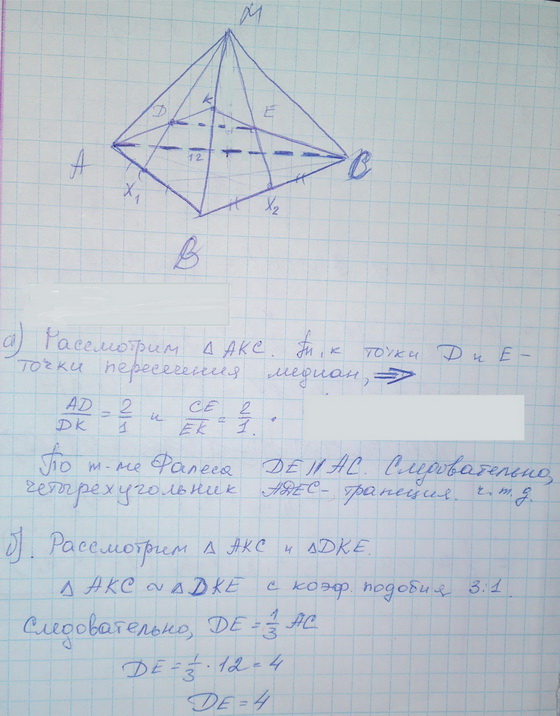 M
D K E
A 12 C
X₁ X₂
B
а) Рассмотрим △ AKC. Т.к точки D и E –
точки пересечения медиан, ⇒
AD/DK = 2/1 и CE/EK = 2/1.
По т-ме Фалеса DE || AC. Следовательно,
четырехугольник ADEC – трапеция. ч.т.д.
б). Рассмотрим △ AKC и △DKE.
△ AKC ~ △DKE с коэф. подобия 3:1.
Следовательно, DE = 1/3 AC
DE = 1/3 · 12 = 4
DE = 4